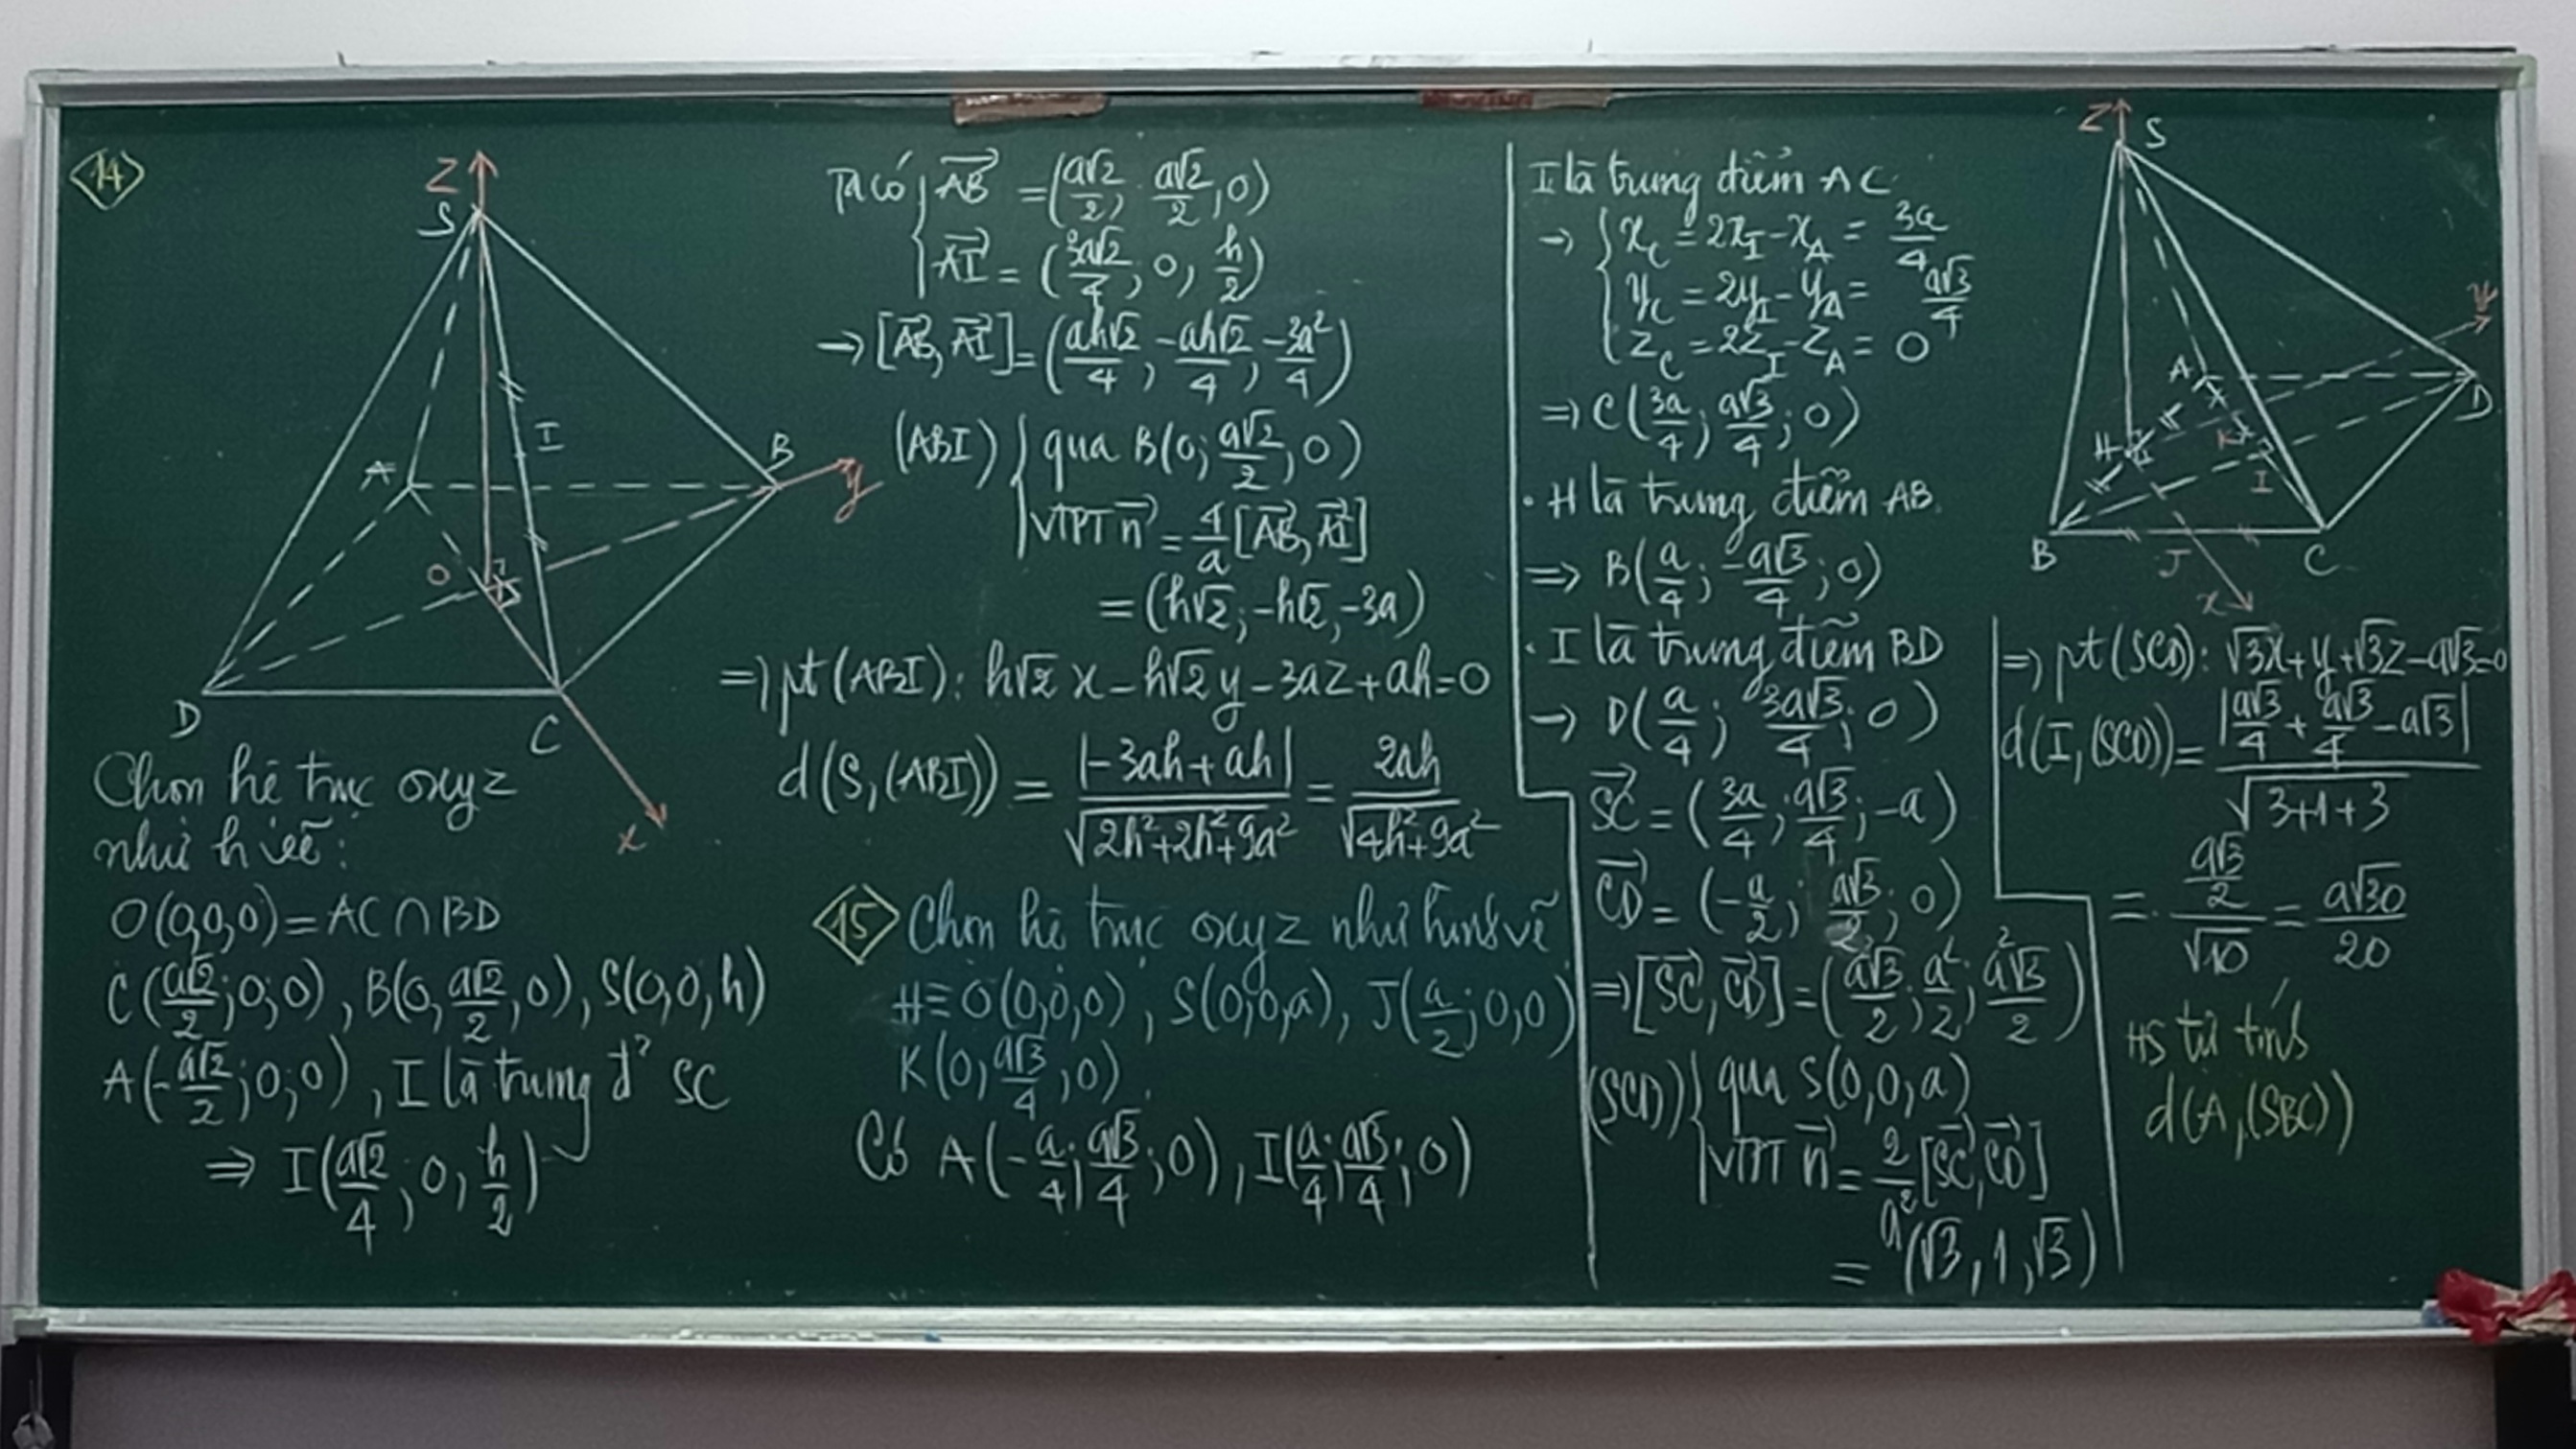 14
Z
S
I
A
B
y
O
D
C
x
Chọn hệ trục oxyz
như h vẽ:
O(0,0,0) = AC ∩ BD
C(a√2/2; 0; 0), B(0, a√2/2, 0), S(0, 0, h)
A(-a√2/2; 0; 0), I là trung đ² SC
⇒ I(a√2/4; 0, h/2)
Ta có { AB→ = (a√2/2; a√2/2; 0)
AI→ = (3a√2/4; 0, h/2)
→ [AB→, AI→] = (ah√2/4; -ah√2/4; -3a²/4)
(ABI) { qua B(0; a√2/2; 0)
VTPT n→ = 4/a [AB→, AI→]
= (h√2; -h√2, -3a)
⇒ pt (ABI): h√2 x - h√2 y - 3az + ah = 0
d(S, (ABI)) = |-3ah + ah| / √(2h²+2h²+9a²) = 2ah / √(4h²+9a²)
15 Chọn hệ trục oxyz như hình vẽ
H ≡ O(0,0,0), S(0,0,a), J(a/2; 0; 0)
K(0, a√3/4, 0).
Có A(-a/4; a√3/4; 0), I(a/4; a√3/4; 0)
I là trung điểm AC
→ { x_C = 2x_I - x_A = 3a/4
y_C = 2y_I - y_A = a√3/4
z_C = 2z_I - z_A = 0
⇒ C(3a/4; a√3/4; 0)
· H là trung điểm AB.
⇒ B(a/4; -a√3/4; 0)
· I là trung điểm BD
→ D(a/4; 3a√3/4; 0)
SC→ = (3a/4; a√3/4; -a)
CD→ = (-a/2; a√3/2; 0)
⇒ [SC→, CD→] = (a²√3/2; a²/2; a²√3/2)
(SCD) { qua S(0,0,a)
VTPT n→ = 2/a² [SC→, CD→]
= (√3, 1, √3)
Z
S
y
A
D
H
K
I
B
J
C
x
⇒ pt (SCD): √3x + y + √3z - a√3 = 0
d(I, (SCD)) = |a√3/4 + a√3/4 - a√3| / √(3+1+3)
= (a√3/2) / √10 = a√30/20
HS tự tính
d(A, (SBC))